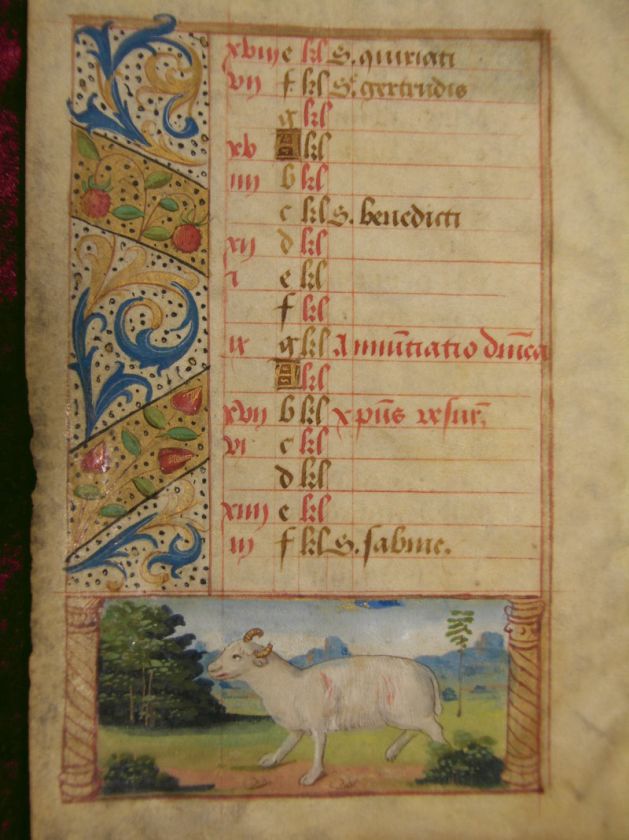 xviij e kl S. quiriaci
vij f kl Sᵉ. gertrudis
g kl
xv A kl
iiij b kl
c kl S. benedicti
xij d kl
i e kl
f kl
ix g kl Annūtiatio dn̄ica
A kl
xvij b kl xp̄us resur
vi c kl
d kl
xiiij e kl
iij f kl S. sabine.